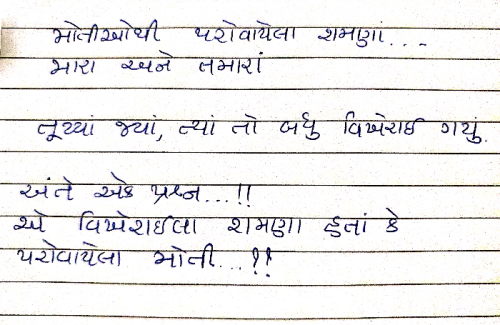 મોતીઓથી પરોવાયેલા શમણાં....
મારા અને તમારાં
તૂટ્યાં જ્યાં, ત્યાં તો બધુ વિખેરાઈ ગયું.
અંતે એક પ્રશ્ન...!!
એ વિખેરાઈલા શમણા હતાં કે
પરોવાયેલા મોતી...?!